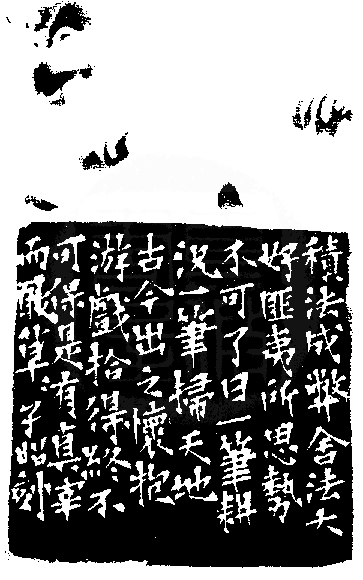 積法成弊舍法大
好匪夷所思勢
不可了曰一筆耕
況一筆掃天地
古今出之懷抱
游戲拾得終不
可保是有真宰
而草子昭